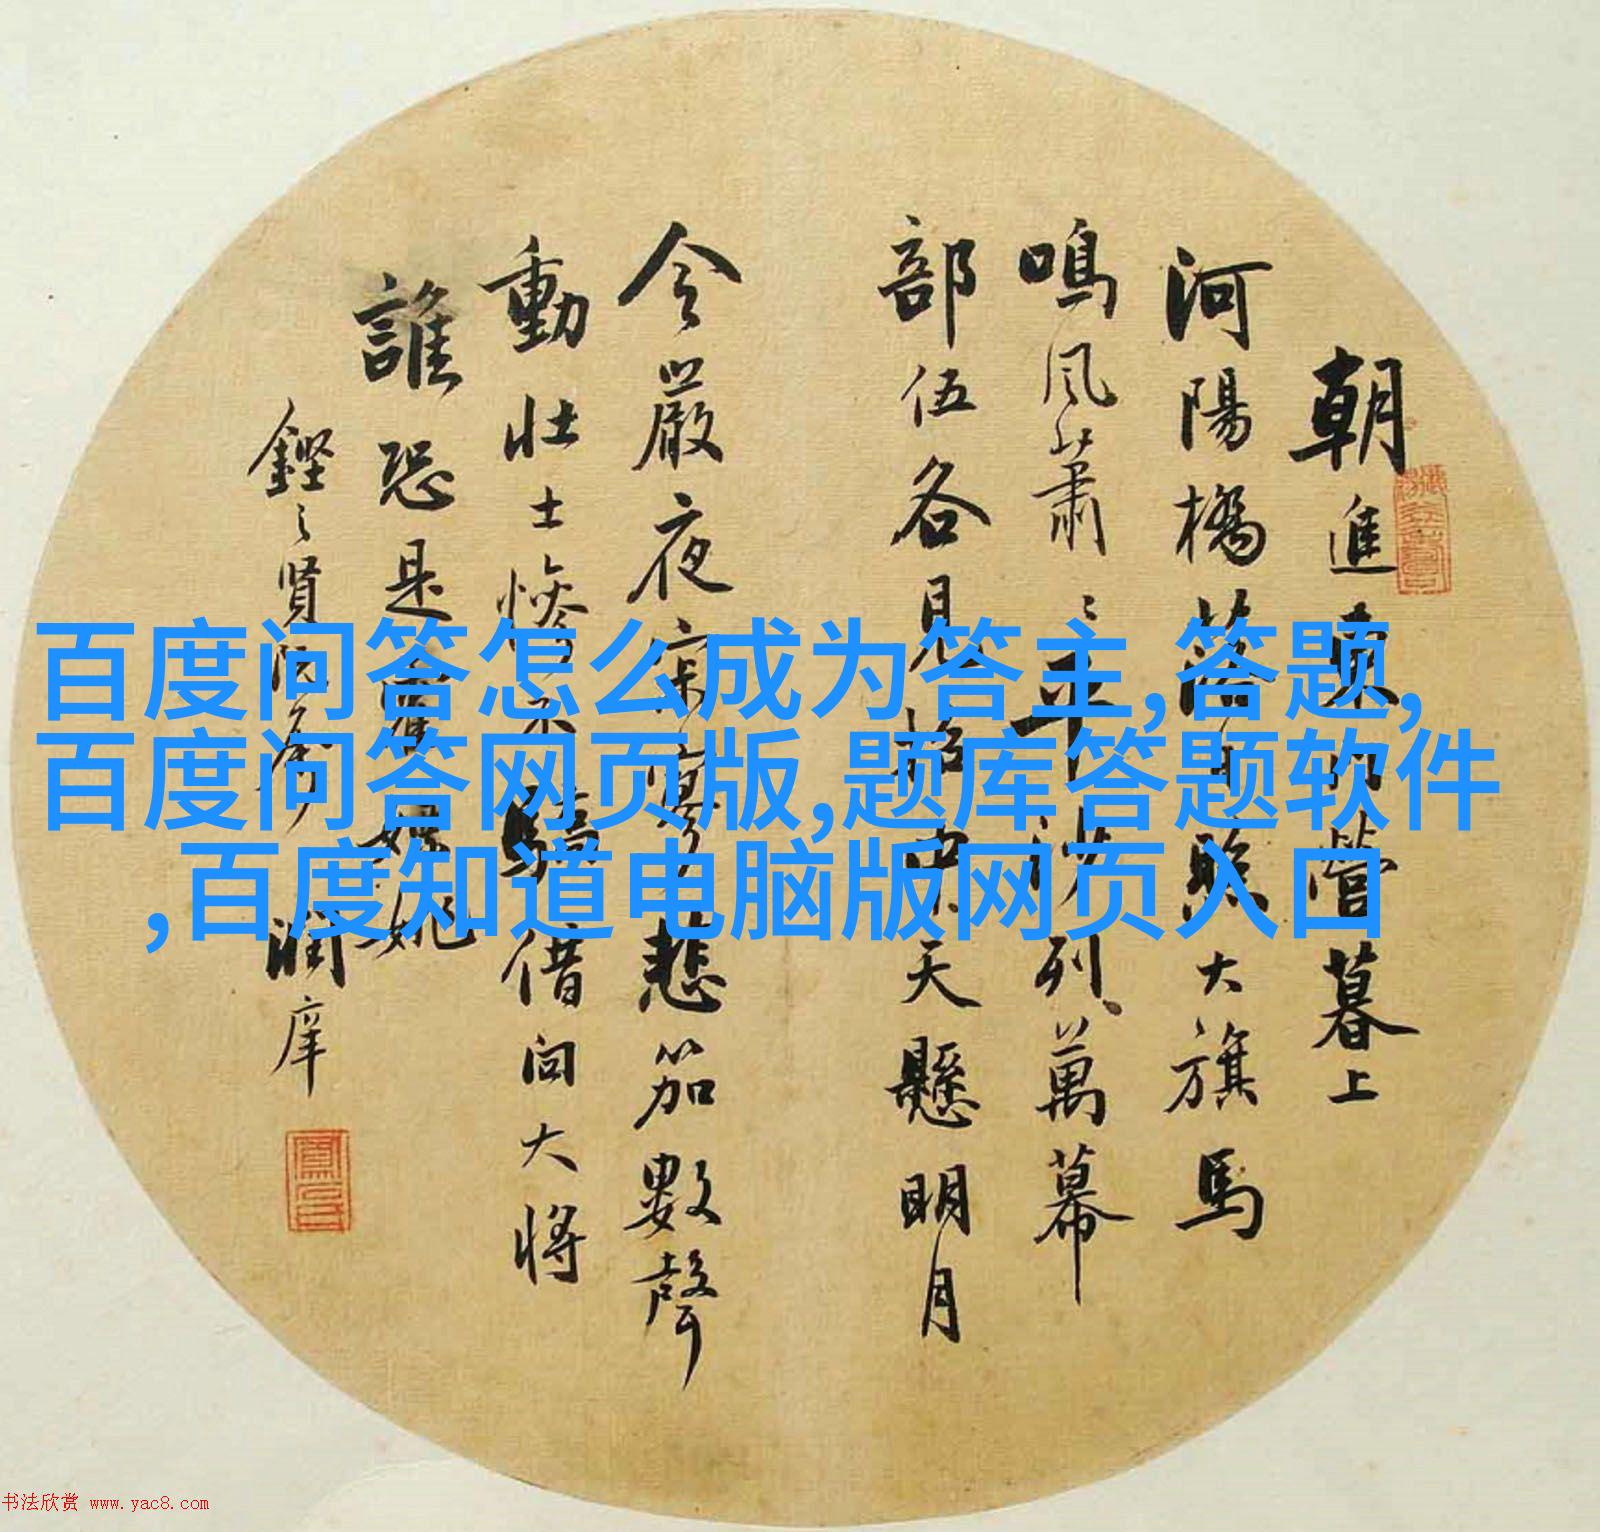 朝進東門營暮上
河陽橋落日照大旗馬
鳴風蕭〻平沙列萬幕
部伍各見招中天懸明月
令嚴夜寂寥悲笳數聲
動壯士慘不驕借問大將
誰恐是霍嫖姚
賢阮
潤庠
百度问答怎么成为答主,答题,
百度问答网页版,题库答题软件
,百度知道电脑版网页入口
书法欣赏 www.yac8.com